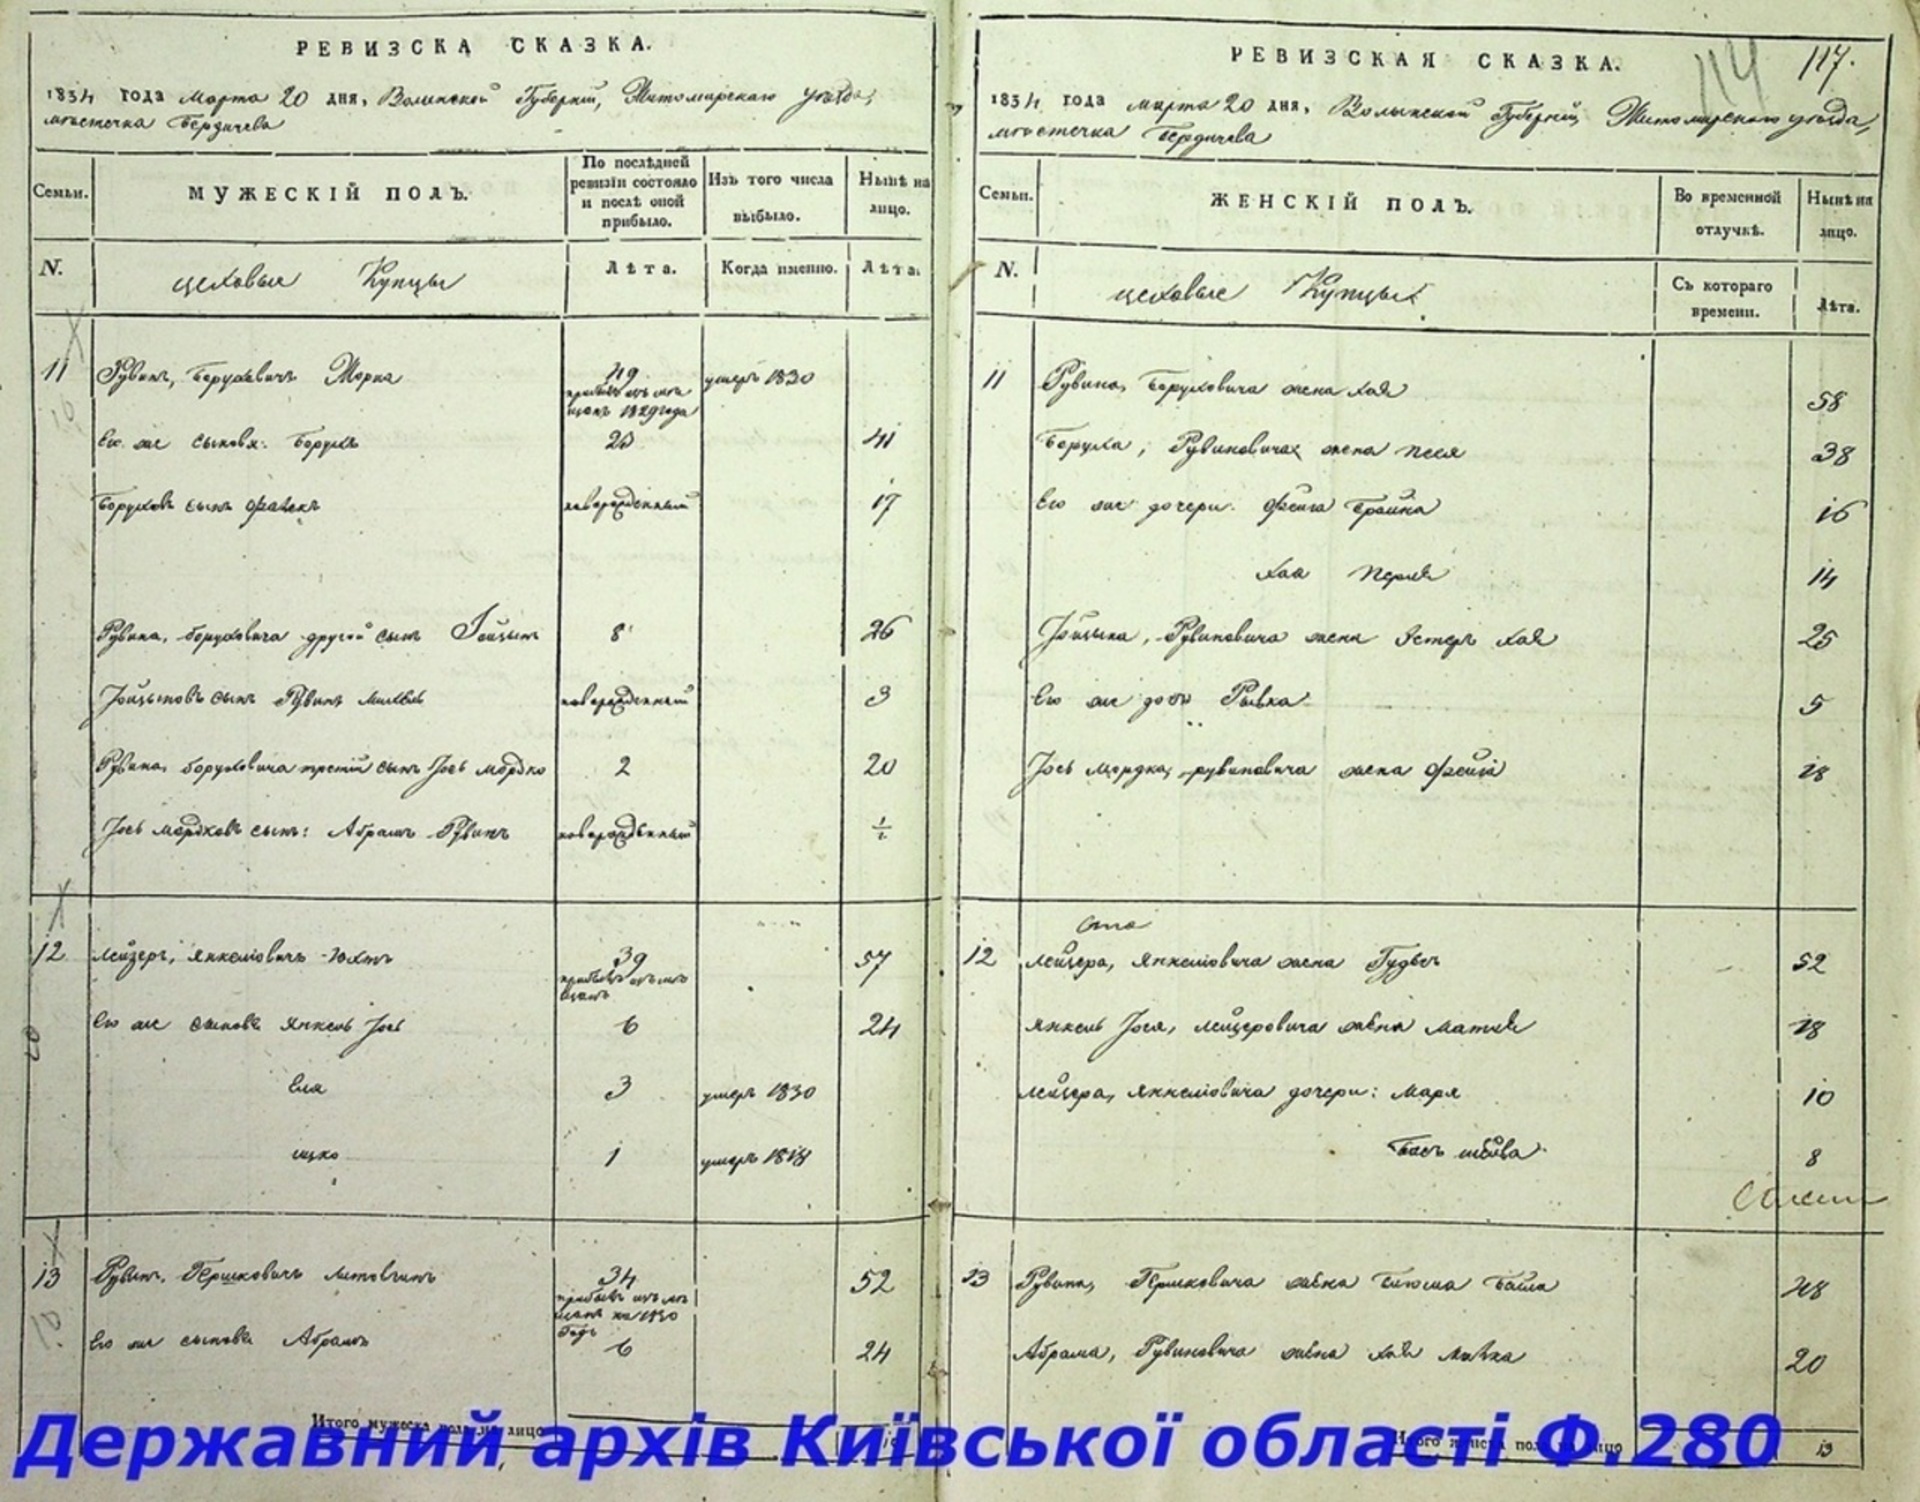 РЕВИЗСКА СКАЗКА.
1834 года Марта 20 дня, Волынской Губерніи, Житомирскаго уезда,
мѣстечка Бердичева
Семьи.
МУЖЕСКІЙ ПОЛЪ.
По послѣдней
ревизіи состояло
и послѣ оной
прибыло.
Изъ того числа
выбыло.
Нынѣ на
лицо.
N.
цеховые Купцы
Лѣта.
Когда именно.
Лѣта.
11 Рувинъ, Боруховичъ 49 умеръ 1830
1829 года
Его же сыновя: Борухъ 23 41
Боруховъ сынъ новорожденный 17
Рувина, Боруховича другой сынъ 8 26
сынъ Рувинъ новорожденный 3
Рувина, Боруховича третій сынъ Іось Мордко 2 20
Іось Мордковъ сынъ: Абрамъ Рувинъ новорожденный ½
12 Лейзеръ, Янкелiовичъ 39 57
Его же сыновя Янкель Іось 6 24
Еля 3 умеръ 1830
ицко 1 умеръ 1818
13 Рувинъ, Гершковичъ Литовчинъ 34 52
1830
Его же сыновя Абрамъ 6 24
Итого мужеска пола на лицо
РЕВИЗСКАЯ СКАЗКА.
114 117.
1834 года марта 20 дня, Волынской Губерніи, Житомирскаго уезда,
мѣстечка Бердичева
Семьи.
ЖЕНСКІЙ ПОЛЪ.
Во временной
отлучкѣ.
Нынѣ на
лицо.
N.
цеховые Купцы
Съ котораго
времени.
Лѣта.
11 Рувина, Боруховича жена Хая 58
Боруха, Рувиновича жена Песя 38
Его же дочери: Фейга Брайна 16
Хая Перля 14
Рувиновича жена Эстеръ Хая 25
Его же дочь Рывка 5
Іось Мордка, Рувиновича жена Фейга 18
12 Лейзера, Янкелiовича жена 52
Янкель Іося, Лейзеровича жена 18
Лейзера, Янкелiовича дочери: Маря 10
Бась шева 8
13 Рувина, Гершковича жена Блюма Баша 48
Абрама, Рувиновича жена Хая 20
Итого женска пола на лицо 13
Державний архів Київської області Ф.280